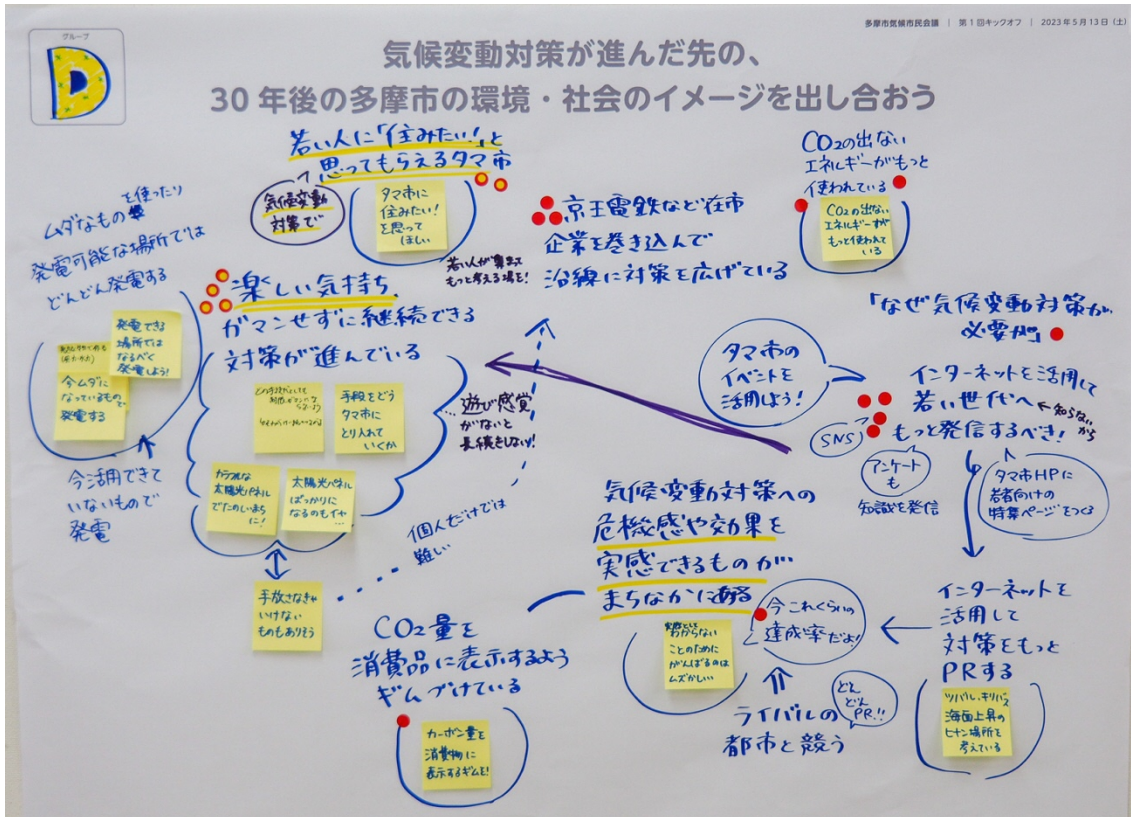 多摩市気候市民会議 | 第1回キックオフ | 2023年5月13日(土)
グループ
D
気候変動対策が進んだ先の、
30年後の多摩市の環境・社会のイメージを出し合おう
若い人に「住みたい!」と
思ってもらえるタマ市
気候変動
対策で
タマ市に
住みたい!
を思って
ほしい
若い人が集まって
もっと考える場を!
京王電鉄など在市
企業を巻き込んで
沿線に対策を広げている
CO2の出ない
エネルギーがもっと
使われている
CO2の出ない
エネルギーが
もっと使われて
いる
ムダなものを使ったり
発電可能な場所では
どんどん発電する
発電できる
場所では
なるべく
発電しよう!
今ムダに
なっているもので
発電する
今活用できて
いないもので
発電
楽しい気持ち
ガマンせずに継続できる
対策が進んでいる
手段をどう
タマ市に
とり入れて
いくか
カラフルな
太陽光パネル
でたのしいまち
に!
太陽光パネル
ばっかりに
なるのもイヤ
…
…遊び感覚
がないと
長続きしない!
手放さなきゃ
いけない
ものもありそう
個人だけでは
難しい
「なぜ気候変動対策が
必要か」
タマ市の
イベントを
活用しよう!
インターネットを活用して
若い世代へ
もっと発信するべき!
知らない
から
SNS
アンケート
も
知識を発信
タマ市HPに
若者向けの
特集ページをつくる
インターネットを
活用して
対策をもっと
PRする
ツバル、キリバス
海面上昇の
ヒナン場所を
考えている
気候変動対策への
危機感や効果を
実感できるものが
まちなかにある
実感として
わからない
ことのために
がんばるのは
ムズかしい
今これくらいの
達成率だよ!
ライバルの
都市と競う
どん
どん
PR!!
CO2量を
消費品に表示するよう
ギムづけている
カーボン量を
消費物に
表示するギムを!